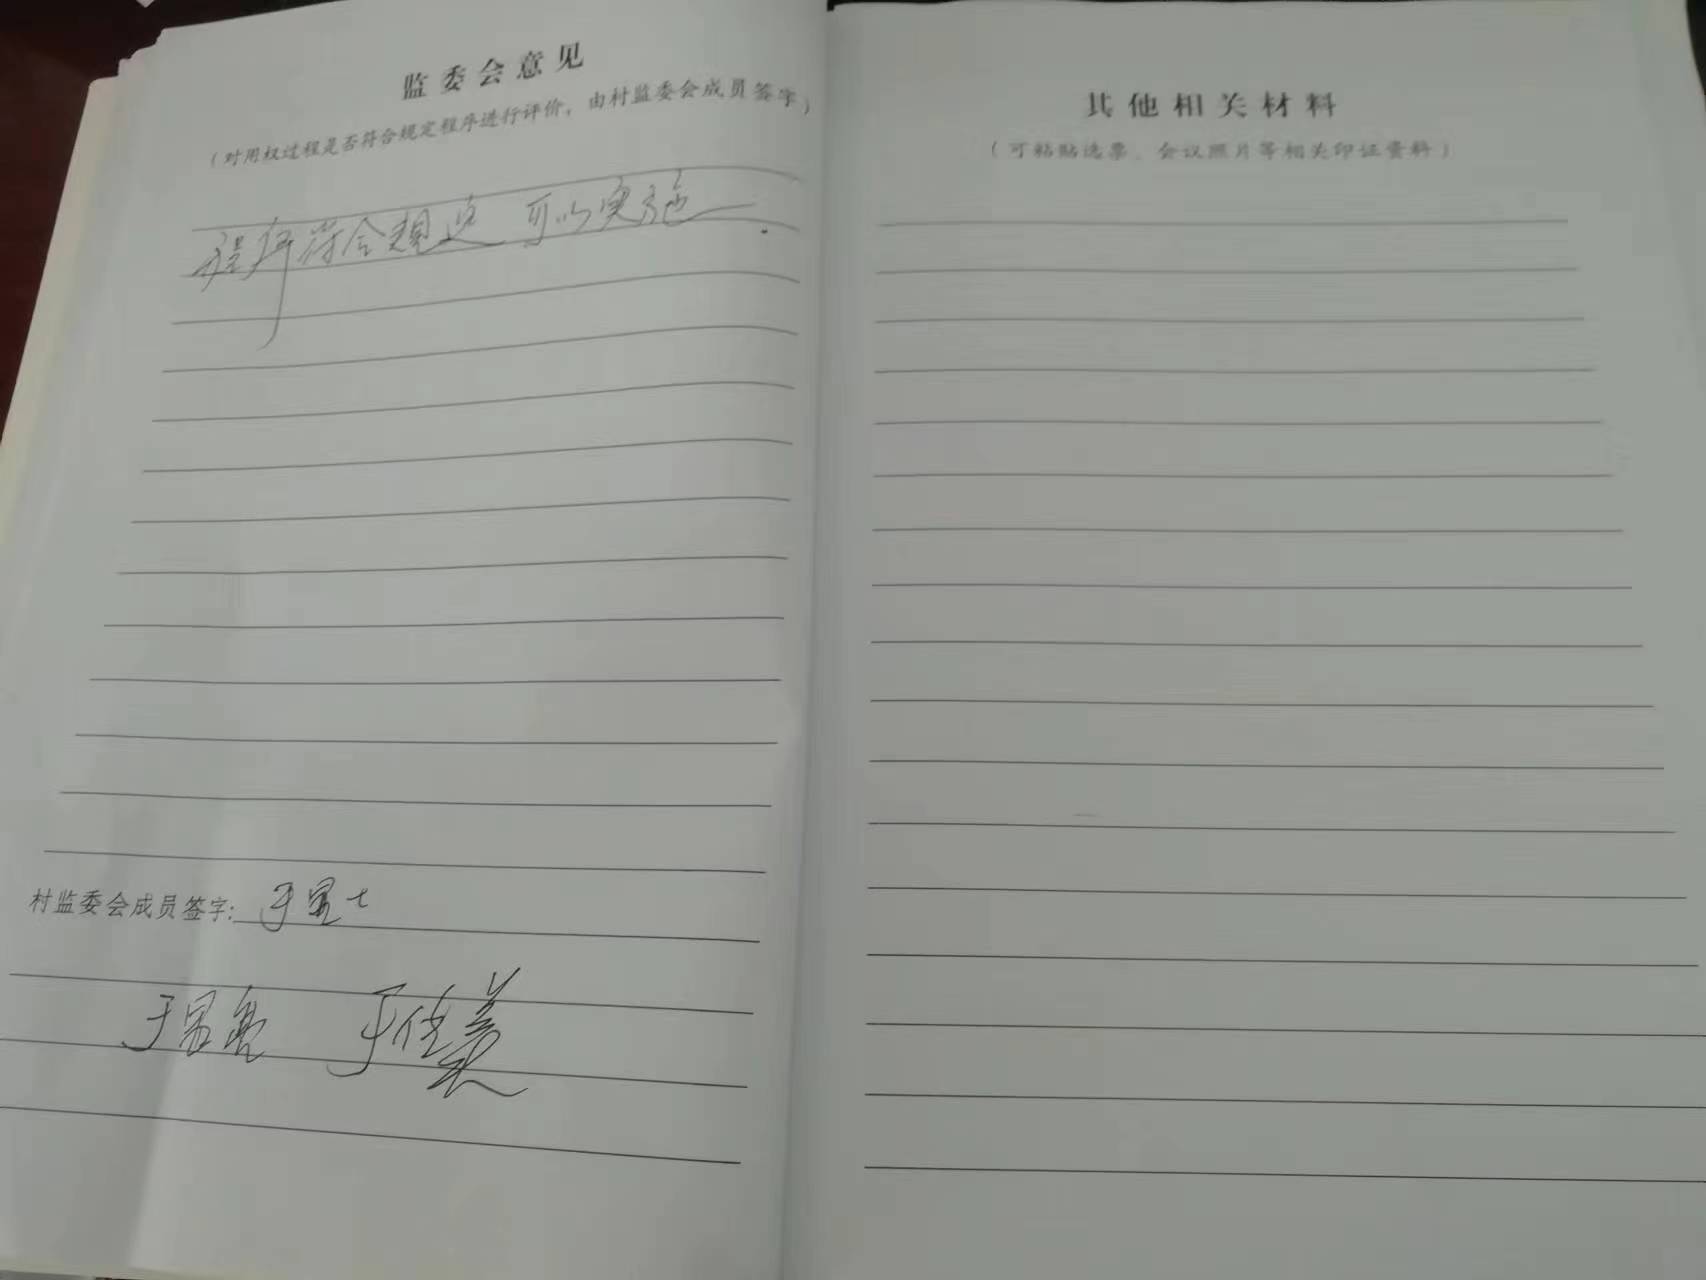 监委会意见
（对用权过程是否符合规定程序进行评价，由村监委会成员签字）
程序符合规定 可以实施
村监委会成员签字:
于佳美
其他相关材料
（可粘贴选票、会议照片等相关印证资料）